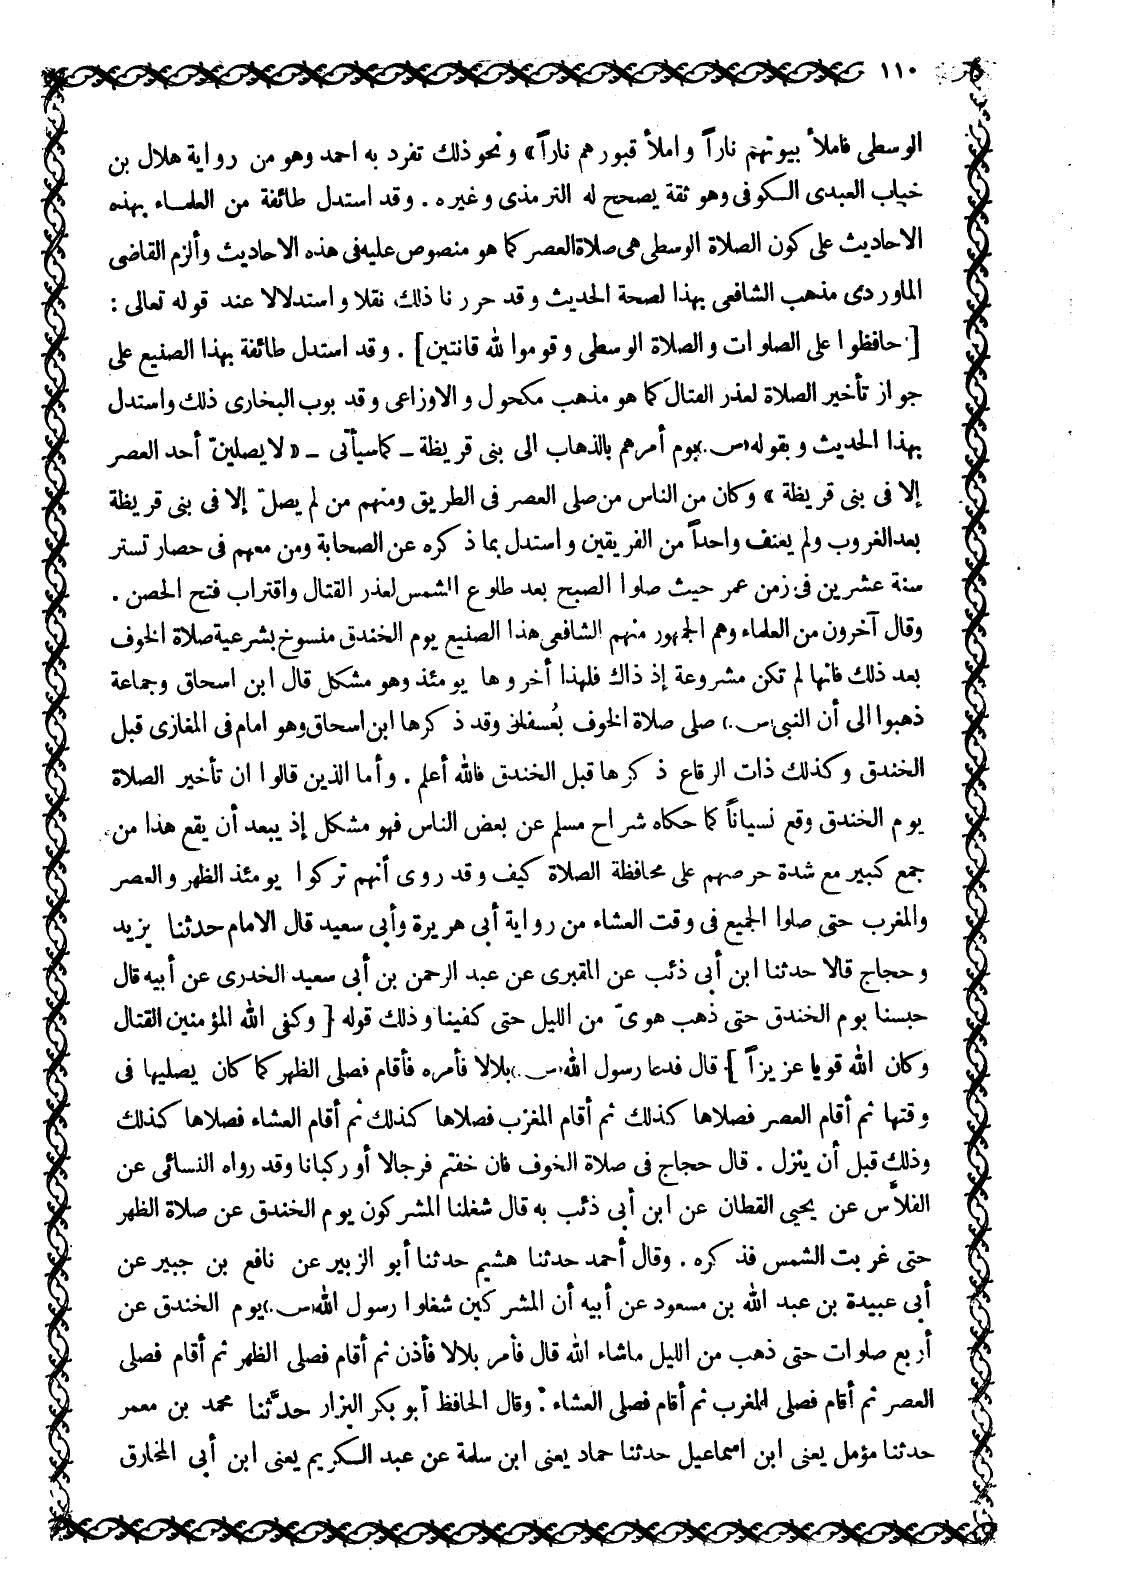 ١١٠
الوسطى فاملأ بيوتهم ناراً واملأ قبورهم ناراً» ونحو ذلك تفرد به احمد وهو من رواية هلال بن
خباب العبدى الكوفى وهو ثقة يصحح له الترمذى وغيره . وقد استدل طائفة من العلماء بهذه
الاحاديث على كون الصلاة الوسطى هى صلاة العصر كما هو منصوص عليه فى هذه الاحاديث وألزم القاضى
الماوردى مذهب الشافعى بهذا لصحة الحديث وقد حررنا ذلك نقلا واستدلالا عند قوله تعالى :
[ حافظوا على الصلوات والصلاة الوسطى وقوموا لله قانتين] . وقد استدل طائفة بهذا الصنيع على
جواز تأخير الصلاة لعذر القتال كما هو مذهب مكحول والاوزاعى وقد بوب البخارى ذلك واستدل
بهذا الحديث وبقوله (س.) يوم أمرهم بالذهاب الى بنى قريظة ـ كما سيأتى ـ «لا يصلينّ أحد العصر
إلا فى بنى قريظة » وكان من الناس من صلى العصر فى الطريق ومنهم من لم يصلّ إلا فى بنى قريظة
بعد الغروب ولم يعنف واحداً من الفريقين واستدل بما ذكره عن الصحابة ومن معهم فى حصار تستر
سنة عشرين فى زمن عمر حيث صلوا الصبح بعد طلوع الشمس لعذر القتال واقتراب فتح الحصن .
وقال آخرون من العلماء وهم الجمهور منهم الشافعى هذا الصنيع يوم الخندق منسوخ بشرعية صلاة الخوف
بعد ذلك فانها لم تكن مشروعة إذ ذاك فلهذا أخروها يومئذ وهو مشكل قال ابن اسحاق وجماعة
ذهبوا الى أن النبى (س.) صلى صلاة الخوف بعُسفان وقد ذكرها ابن اسحاق وهو امام فى المغازى قبل
الخندق وكذلك ذات الرقاع ذكرها قبل الخندق فالله أعلم . وأما الذين قالوا ان تأخير الصلاة
يوم الخندق وقع نسياناً كما حكاه شراح مسلم عن بعض الناس فهو مشكل إذ يبعد أن يقع هذا من
جمع كبير مع شدة حرصهم على محافظة الصلاة كيف وقد روى أنهم تركوا يومئذ الظهر والعصر
والمغرب حتى صلوا الجميع فى وقت العشاء من رواية أبى هريرة وأبى سعيد قال الامام حدثنا يزيد
وحجاج قالا حدثنا ابن أبى ذئب عن المقبرى عن عبد الرحمن بن أبى سعيد الخدرى عن أبيه قال
حبسنا يوم الخندق حتى ذهب هوىّ من الليل حتى كفينا وذلك قوله [ وكفى الله المؤمنين القتال
وكان الله قويا عزيزاً ] قال فدعا رسول الله (س.) بلالا فأمره فأقام فصلى الظهر كما كان يصليها فى
وقتها ثم أقام العصر فصلاها كذلك ثم أقام المغرب فصلاها كذلك ثم أقام العشاء فصلاها كذلك
وذلك قبل أن ينزل . قال حجاج فى صلاة الخوف فان خفتم فرجالا أو ركبانا وقد رواه النسائى عن
الفلاّس عن يحيى القطان عن ابن أبى ذئب به قال شغلنا المشركون يوم الخندق عن صلاة الظهر
حتى غربت الشمس فذكره . وقال أحمد حدثنا هشيم حدثنا أبو الزبير عن نافع بن جبير عن
أبى عبيدة بن عبد الله بن مسعود عن أبيه أن المشركين شغلوا رسول الله (س.) يوم الخندق عن
أربع صلوات حتى ذهب من الليل ماشاء الله قال فأمر بلالا فأذن ثم أقام فصلى الظهر ثم أقام فصلى
العصر ثم أقام فصلى المغرب ثم أقام فصلى العشاء . وقال الحافظ أبو بكر البزار حدَّثنا محمد بن معمر
حدثنا مؤمل يعنى ابن اسماعيل حدثنا حماد يعنى ابن سلمة عن عبد الكريم يعنى ابن أبى المخارق